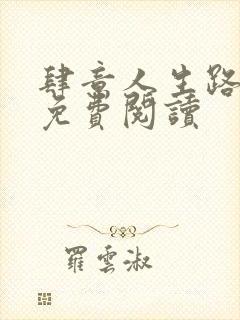 肆意人生路
免費閱讀
羅雲淑